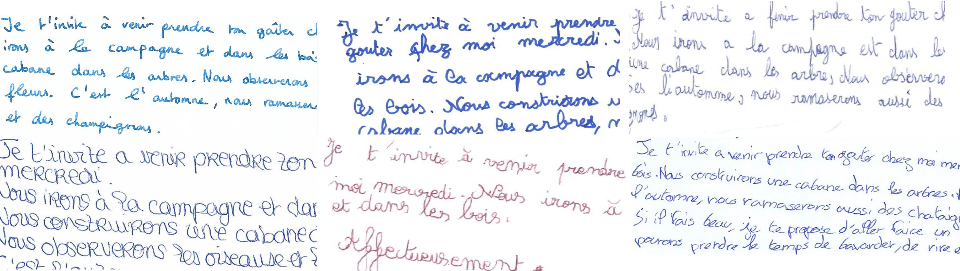 Je t'invite à venir prendre ton goûter c
irons à la campagne et dans les boi
cabane dans les arbres. Nous observerons
fleurs. C'est l'automne, nous ramasseron
et des champignons.
Je t'invite à venir prendre
gouter chez moi mercredi.
irons à la campagne et d
les bois. Nous constrirons u
cabane dans les arbres, n
je t'invite a finir prendre ton gouter ch
Nous irons a la campagne est dans le
une cabane dans les arbre, Nous observero
l'automne, nous ramaserons aussi des
Je t'invite a venir prendre ton
mercredi.
Nous irons à la campagne et dan
Nous construirons une cabane d
Nous observerons les oiseause et
Je t'invite à venir prendre
moi mercredi. Nous irons à
et dans les bois.
Affectueusement.
Je t'invite a venir prendre ton gouter chez moi mer
bois. Nous construirons une cabane dans les arbres.
l'automne, nous ramaserons aussi des chataig
Si il fais beau, je te propose d'aller faire un
pourons prendre le temps de bavarder, de rire e